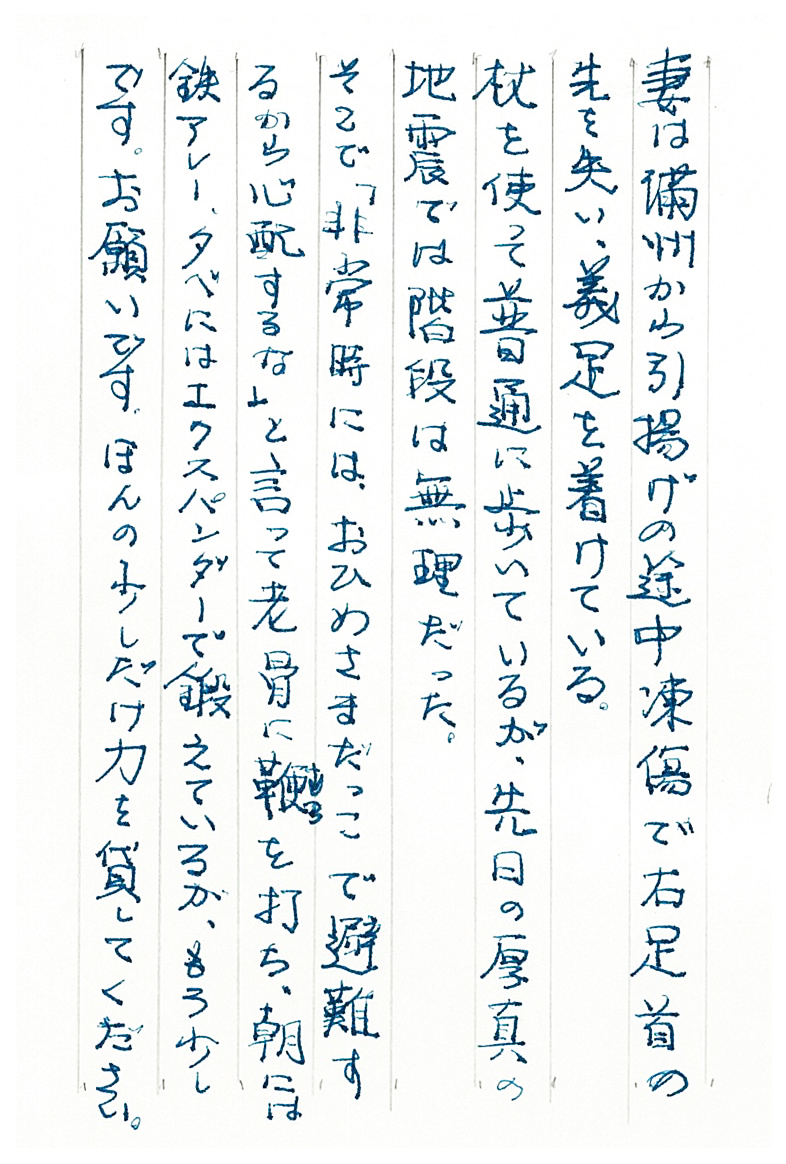 妻は満州から引揚げの途中凍傷で右足首の
先を失い、義足を着けている。
杖を使って普通に歩いているが、先日の厚真の
地震では階段は無理だった。
そこで「非常時には、おひめさまだっこで避難す
るから心配するな」と言って老骨に鞭を打ち、朝には
鉄アレー、夕べにはエクスパンダーで鍛えているが、もう少し
です。お願いです。ほんの少しだけ力を貸してください。